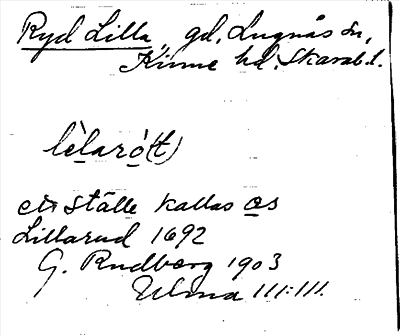 Ryd Lilla gd, Lugnås sn,
Kinne hd, Skarab. l.
lèlarò(t)
ett ställe kallas os
Lillarud 1692
G. Rudberg 1903
Ulma 111:111.